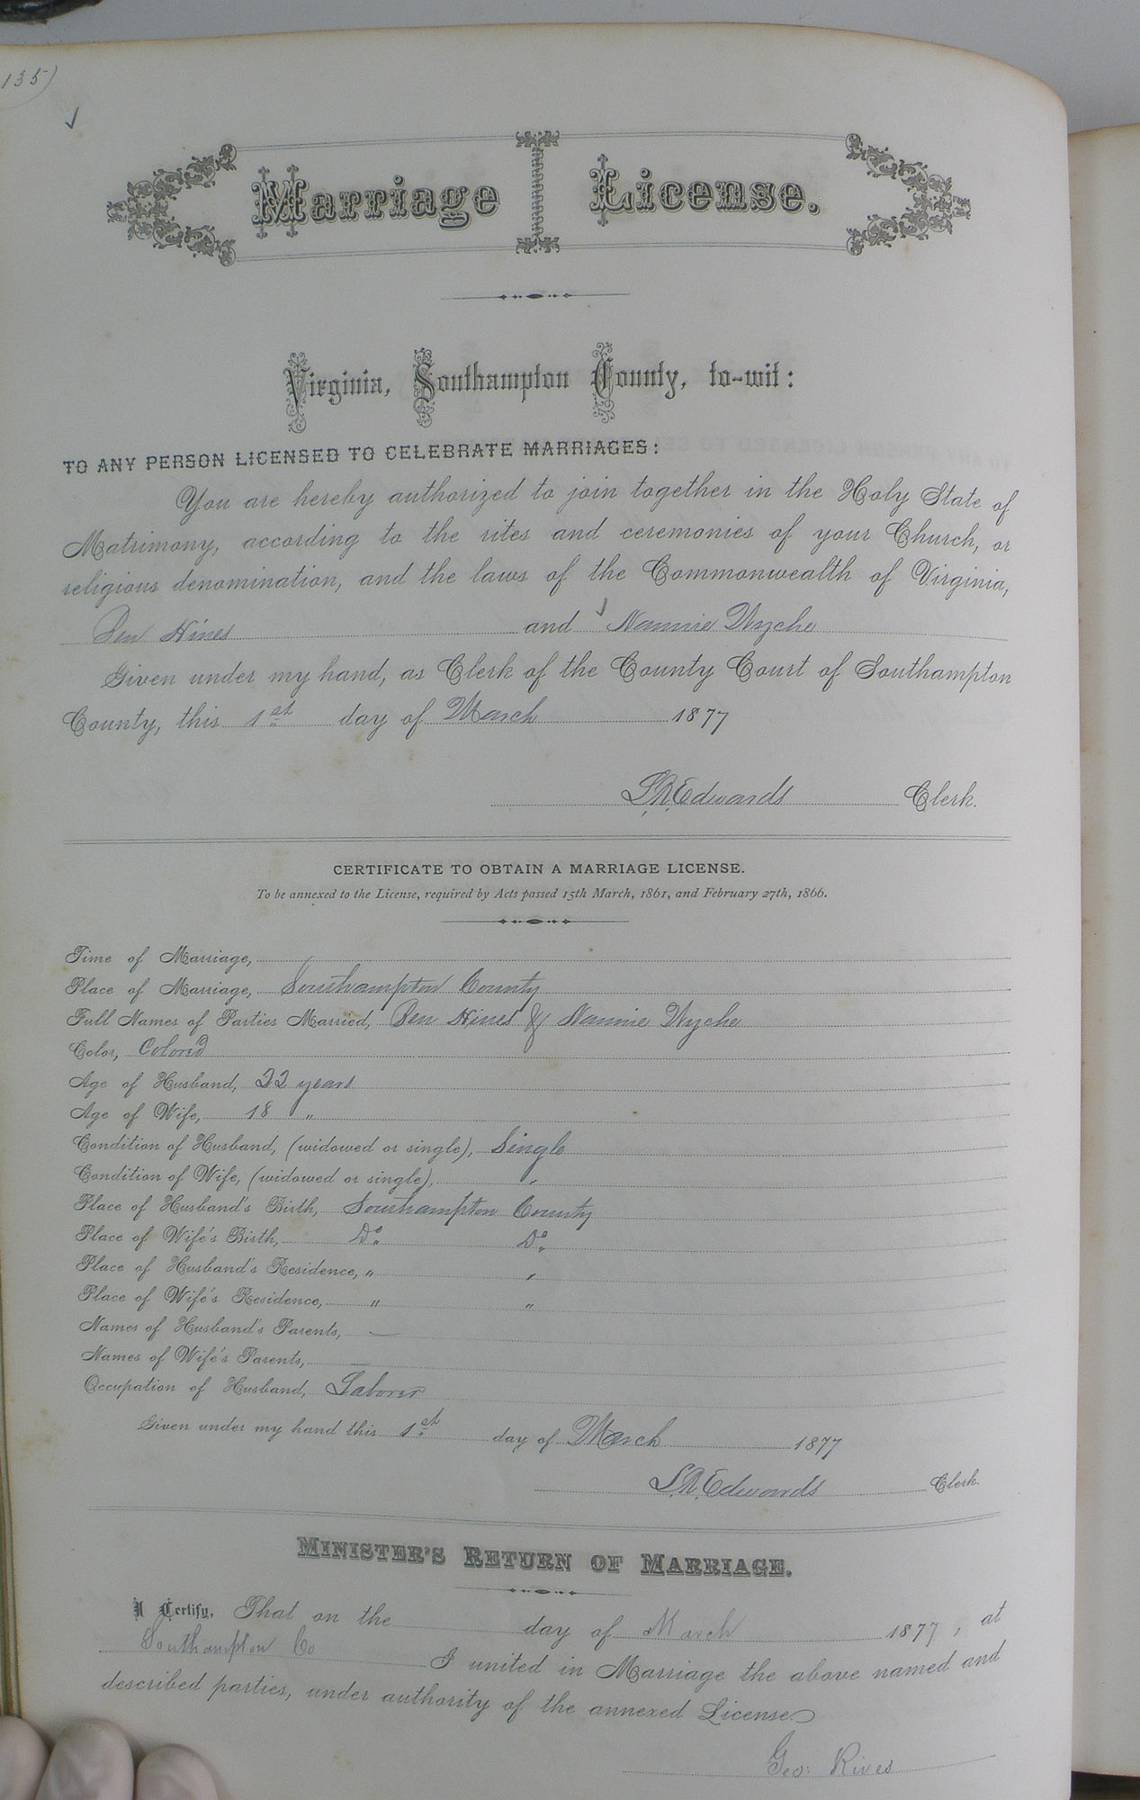 135)
Marriage License.
Virginia, Southampton County, to-wit:
TO ANY PERSON LICENSED TO CELEBRATE MARRIAGES:
You are hereby authorized to join together in the Holy State of
Matrimony, according to the rites and ceremonies of your Church, or
religious denomination, and the laws of the Commonwealth of Virginia,
Ben Hines and Nannie Wyche
Given under my hand, as Clerk of the County Court of Southampton
County, this 1st day of March 1877
L.R. Edwards Clerk.
CERTIFICATE TO OBTAIN A MARRIAGE LICENSE.
To be annexed to the License, required by Acts passed 15th March, 1861, and February 27th, 1866.
Time of Marriage,
Place of Marriage, Southampton County
Full Names of Parties Married, Ben Hines & Nannie Wyche
Color, Colored
Age of Husband, 22 years
Age of Wife, 18 "
Condition of Husband, (widowed or single), Single
Condition of Wife, (widowed or single), "
Place of Husband's Birth, Southampton County
Place of Wife's Birth, Do Do
Place of Husband's Residence, " "
Place of Wife's Residence, " "
Names of Husband's Parents, —
Names of Wife's Parents, —
Occupation of Husband, Laborer
Given under my hand this 1st day of March 1877
L.R. Edwards Clerk.
MINISTER'S RETURN OF MARRIAGE.
I Certify, That on the day of March 1877, at
Southampton Co I united in Marriage the above named and
described parties, under authority of the annexed License.
Geo: Rives